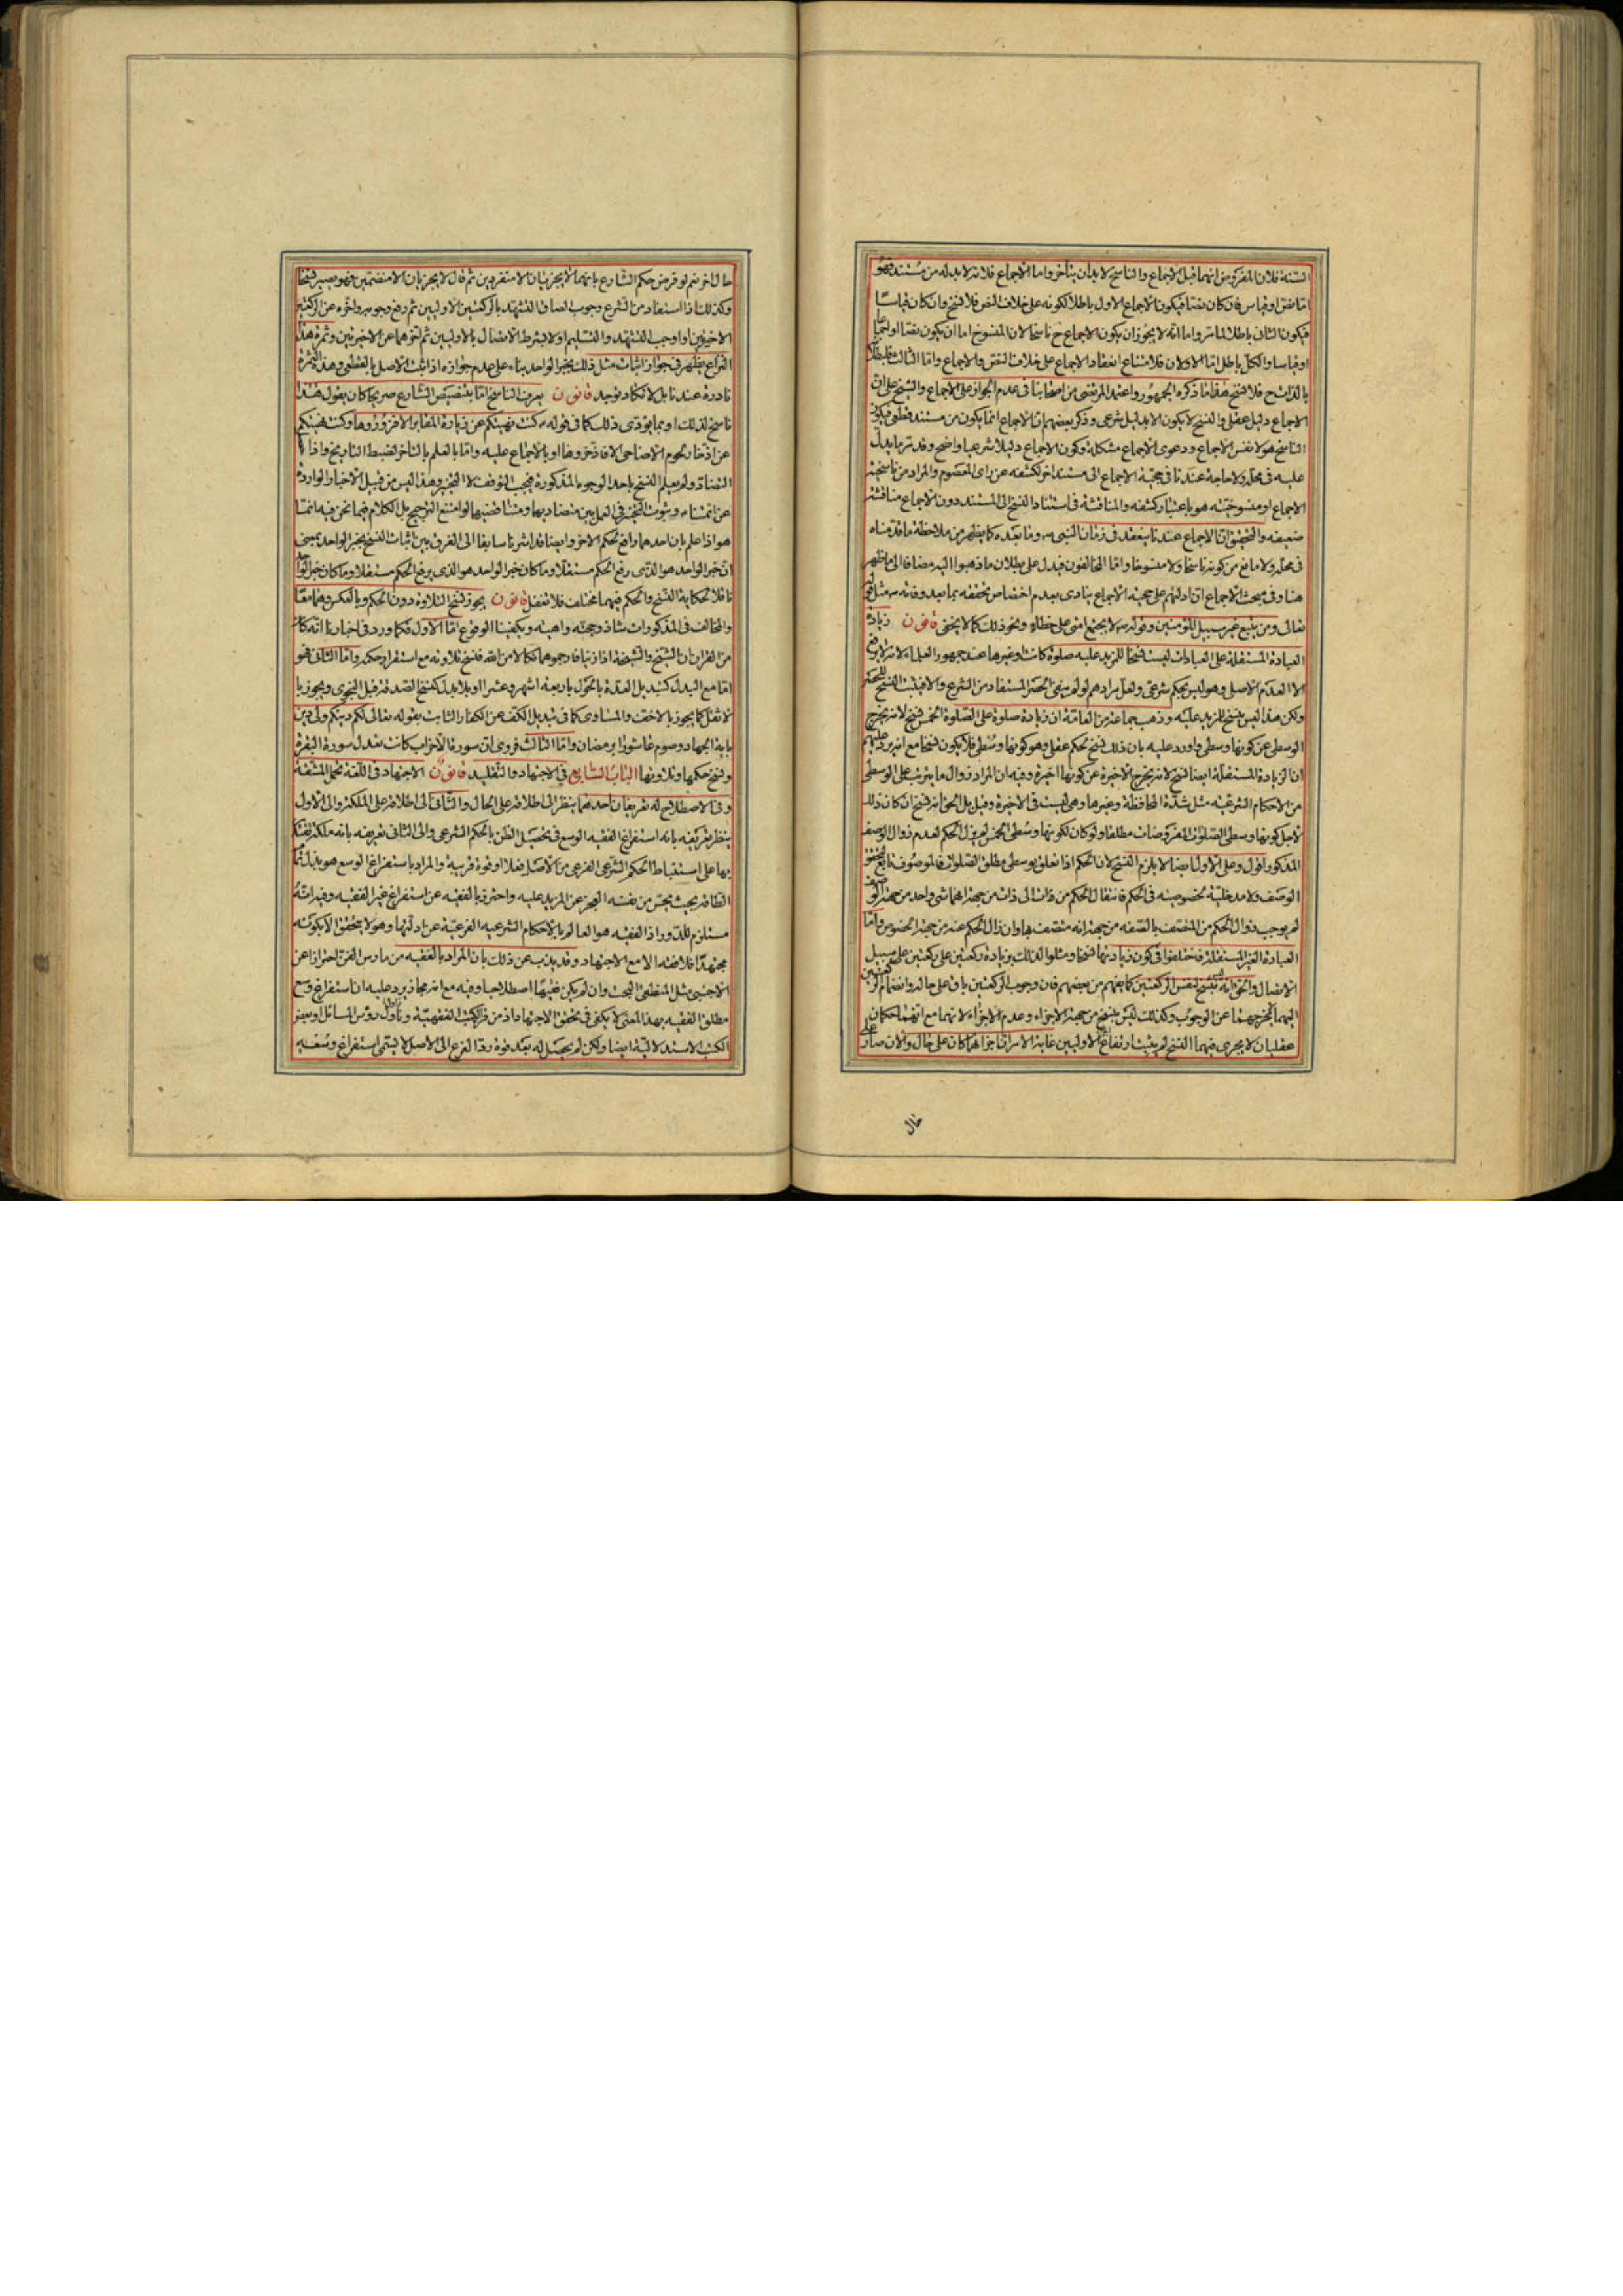 السنة فلان المفروض انهما قبل الاجماع والناسخ لا بد ان يتاخر واما الاجماع فلانه لا بد له من مستند فهو
اما نص او قياس فان كان نصا فيكون الاجماع الاول باطلا لكونه على خلاف النص فلا نسخ وان كان قياسا
فيكون الثانى باطلا لما مر واما انه لا يجوز ان يكون الاجماع ح ناسخا لان المنسوخ اما ان يكون نصا او اجماعا
او قياسا والكل باطل اما الاولان فلامتناع انعقاد الاجماع على خلاف النص والاجماع واما الثالث فلبطلانه
فلا نسخ هذا ما ذكره الجمهور واعتمد المرتضى من اصحابنا فى عدم الجواز على الاجماع والشيخ على ان
الاجماع دليل عقلى والنسخ لا يكون الا بدليل شرعى وذكر بعضهم ان الاجماع انما يكون من مستند قطعى فيكون
الناسخ هو لا نفس الاجماع ودعوى الاجماع مشكلة وكون الاجماع دليلا شرعيا واضح وقد مر ما يدل
عليه فى محله ولا حاجة عندنا فى حجية الاجماع الى مستند اخر لكشفه عن راى المعصوم والمراد من ناسخية
الاجماع او منسوخيته هو باعتبار كشفه والمناقشة فى استناد النسخ الى المستند دون الاجماع مناقشة
ضعيفة والتحقيق ان الاجماع عندنا ينعقد فى زمان النبى ص وما بعده كما يظهر من ملاحظة ما قدمناه
فى محله ولا مانع من كونه ناسخا ولا منسوخا واما المخالفون فيدل على بطلان ما ذهبوا اليه مضافا الى ما ظهر
هنا وفى مبحث الاجماع ان ادلتهم على حجية الاجماع ينادى بعدم اختصاص تحققه بما بعد وفاته ص مثل قوله
تعالى ومن يتبع غير سبيل المؤمنين وقوله ص لا يجتمع امتى على خطاء ونحو ذلك كما لا يخفى قانون زيادة
العبادة المستقلة على العبادات ليست نسخا للمزيد عليه صلوة كانت او غيرها عند جمهور العلماء لانه لا يرفع
الا العدم الاصلى وهو ليس بحكم شرعى ولعل مرادهم لو لم ينفى الحصر المستفاد من الشرع والا فيثبت النسخ للحصر
ولكن هذا ليس بنسخ للمزيد عليه وذهب جماعة من العامة ان زيادة صلوة على الصلوة الخمس نسخ لانه يخرج
الوسطى عن كونها وسطى واورد عليه بان ذلك نسخ لحكم عقلى وهو كونها وسطى فلا يكون نسخا مع انه يرد عليهم
ان الزيادة المستقلة ايضا نسخ لانه يخرج الاخيرة عن كونها اخيرة وفيه ان المراد زوال ما يترتب على الوسطى
من الاحكام الشرعية مثل شدة المحافظة وغيرها وهى ليست فى الاخيرة وقيل بل الحق انه نسخ ان كان ذلك
لاجل كونها وسطى الصلوات المفروضات مطلقا ولو كان لكونها وسطى الخمس لم يزل الحكم لعدم زوال الوصف
المذكور اقول وعلى الاول ايضا لا يلزم النسخ لان الحكم اذا تعلق بوسطى مطلق الصلوات فالموصوف تابع لتحقق
الوصف ولا مدخلية لخصوصيته فى الحكم فانتقال الحكم من ذات الى ذات من جهة انهما شى واحد من جهة الوصف
لم يوجب زوال الحكم من المتصف بالصفة من جهة انه متصف بها وان زال الحكم عنه من جهة الخصوص واما
العبادة الغير المستقلة فاختلفوا فى كون زيادتها نسخا ومثلوا لذلك بزيادة ركعتين على ركعتين على سبيل
الاتصال والحق انه لا ينسخ لنفس الركعتين كما يفهم من بعضهم فان وجوب الركعتين باق على حاله وانضمام الركعتين
اليهما لا يخرجهما عن الوجوب وكذلك ليس بنسخ من جهة الاجزاء وعدم الاجزاء لانهما مع انهما حكمان
عقليان لا يجرى فيهما النسخ لم يثبت ارتفاع الاولين غاية الامر ان اجزائهما كان على حال والان صار على
حال
حال اخر نعم لو فرض حكم الشارع بانهما لا يجزيان الا منفردين ثم قال لا يجزيان الا منضمين فهو يصير نسخا
وكذلك اذا استفاد من الشرع وجوب الصاق التشهد بالركعتين الاوليين ثم رفع وجوبه واخره عن الركعتين
الاخيرتين او اوجب التشهد والتسليم اولا بشرط الاتصال بالاوليين ثم اخرهما عن الاخيرتين وثمرة هذا
النزاع يظهر فى جواز اثبات مثل ذلك بخبر الواحد بناء على عدم جوازه اذا ثبت الاصل بالقطعى وهذه الثمرة
نادرة عندنا بل لا تكاد توجد قانون يعرف الناسخ اما بتنصيص الشارع صريحا كان يقول هذا
ناسخ لذلك او بما يؤدى ذلك كما فى قوله ص كنت نهيتكم عن زيارة المقابر الا فزوروها وكنت نهيتكم
عن ادخار لحوم الاضاحى الا فادخروها او بالاجماع عليه واما بالعلم بالتاخر لضبط التاريخ واذا
التضاد ولم يعلم النسخ باحد الوجوه المذكورة فيجب التوقف لا التخيير وهذا ليس من قبيل الاخبار الواردة
عن ائمتنا ع وثبوت التخيير فى العمل بين متضاديها ومتناقضيها لو امتنع الترجيح بل الكلام فيما نحن فيه انما
هو اذا علم بان احدهما رافع لحكم الاخر وايضا قد اشرنا سابقا الى الفرق بين اثبات النسخ بخبر الواحد بمعنى
ان خبر الواحد هو الذى رفع الحكم مستقلا وما كان خبر الواحد هو الذى يرفع الحكم مستقلا وما كان خبر الواحد
ناقلا لحكاية النسخ والحكم فيهما مختلف فلا تغفل قانون يجوز نسخ التلاوة دون الحكم وبالعكس وهما معا
والمخالف فى المذكورات شاذ وحجته واهية ويكفينا الوقوع اما الاول فكما ورد فى اخبارنا انه كان
من القران ان الشيخ والشيخة اذا زنيا فارجموهما نكالا من الله فنسخ تلاوته مع استقرار حكمه واما الثانى فهو
اما مع البدل كتبديل العدة بالحول باربعة اشهر وعشرا او بلا بدل كنسخ الصدقة قبل النجوى ويجوز با
لاثقل كما يجوز بالاخف والمساوى كما فى تبديل الكف عن الكفار الثابت بقوله تعالى لكم دينكم ولى دين
باية الجهاد وصوم عاشورا برمضان واما الثالث فروى ان سورة الاحزاب كانت تعدل سورة البقرة
ونسخ حكمها وتلاوتها الباب السابع فى الاجتهاد والتقليد قانون الاجتهاد فى اللغة تحمل المشقة
وفى الاصطلاح له تعريفان احدهما ينظر الى اطلاقه على الحال والثانى الى اطلاقه على الملكة والى الاول
ينظر تعريفه بانه استفراغ الفقيه الوسع فى تحصيل الظن بالحكم الشرعى والى الثانى تعريفه بانه ملكة يقتدر
بها على استنباط الحكم الشرعى الفرعى من الاصل فعلا او قوة قريبة والمراد باستفراغ الوسع هو بذل تمام
الطاقة بحيث يحس من نفسه العجز عن المزيد عليه واحترز بالفقيه عن استفراغ غير الفقيه وفيه انه
مستلزم للدور اذ الفقيه هو العالم بالاحكام الشرعية الفرعية عن ادلتها وهو لا يتحقق الا بكونه
مجتهدا فلا فقه الا مع الاجتهاد وقد يذب عن ذلك بان المراد بالفقيه من مارس الفن احترازا عن
الاجنبى مثل المنطقى البحت وان لم يكن فقيها اصطلاحيا وفيه مع انه مجاز يرد عليه ان استفراغ وسع
مطلق الفقيه بهذا المعنى لا يكفى فى تحقق الاجتهاد اذ من قرا الكتب الفقهية وتداول رؤس المسائل او بعض
الكتب الاستدلالية ايضا ولكن لم يحصل له بعد قوة رد الفرع الى الاصل لا يسمى استفراغ وسعه